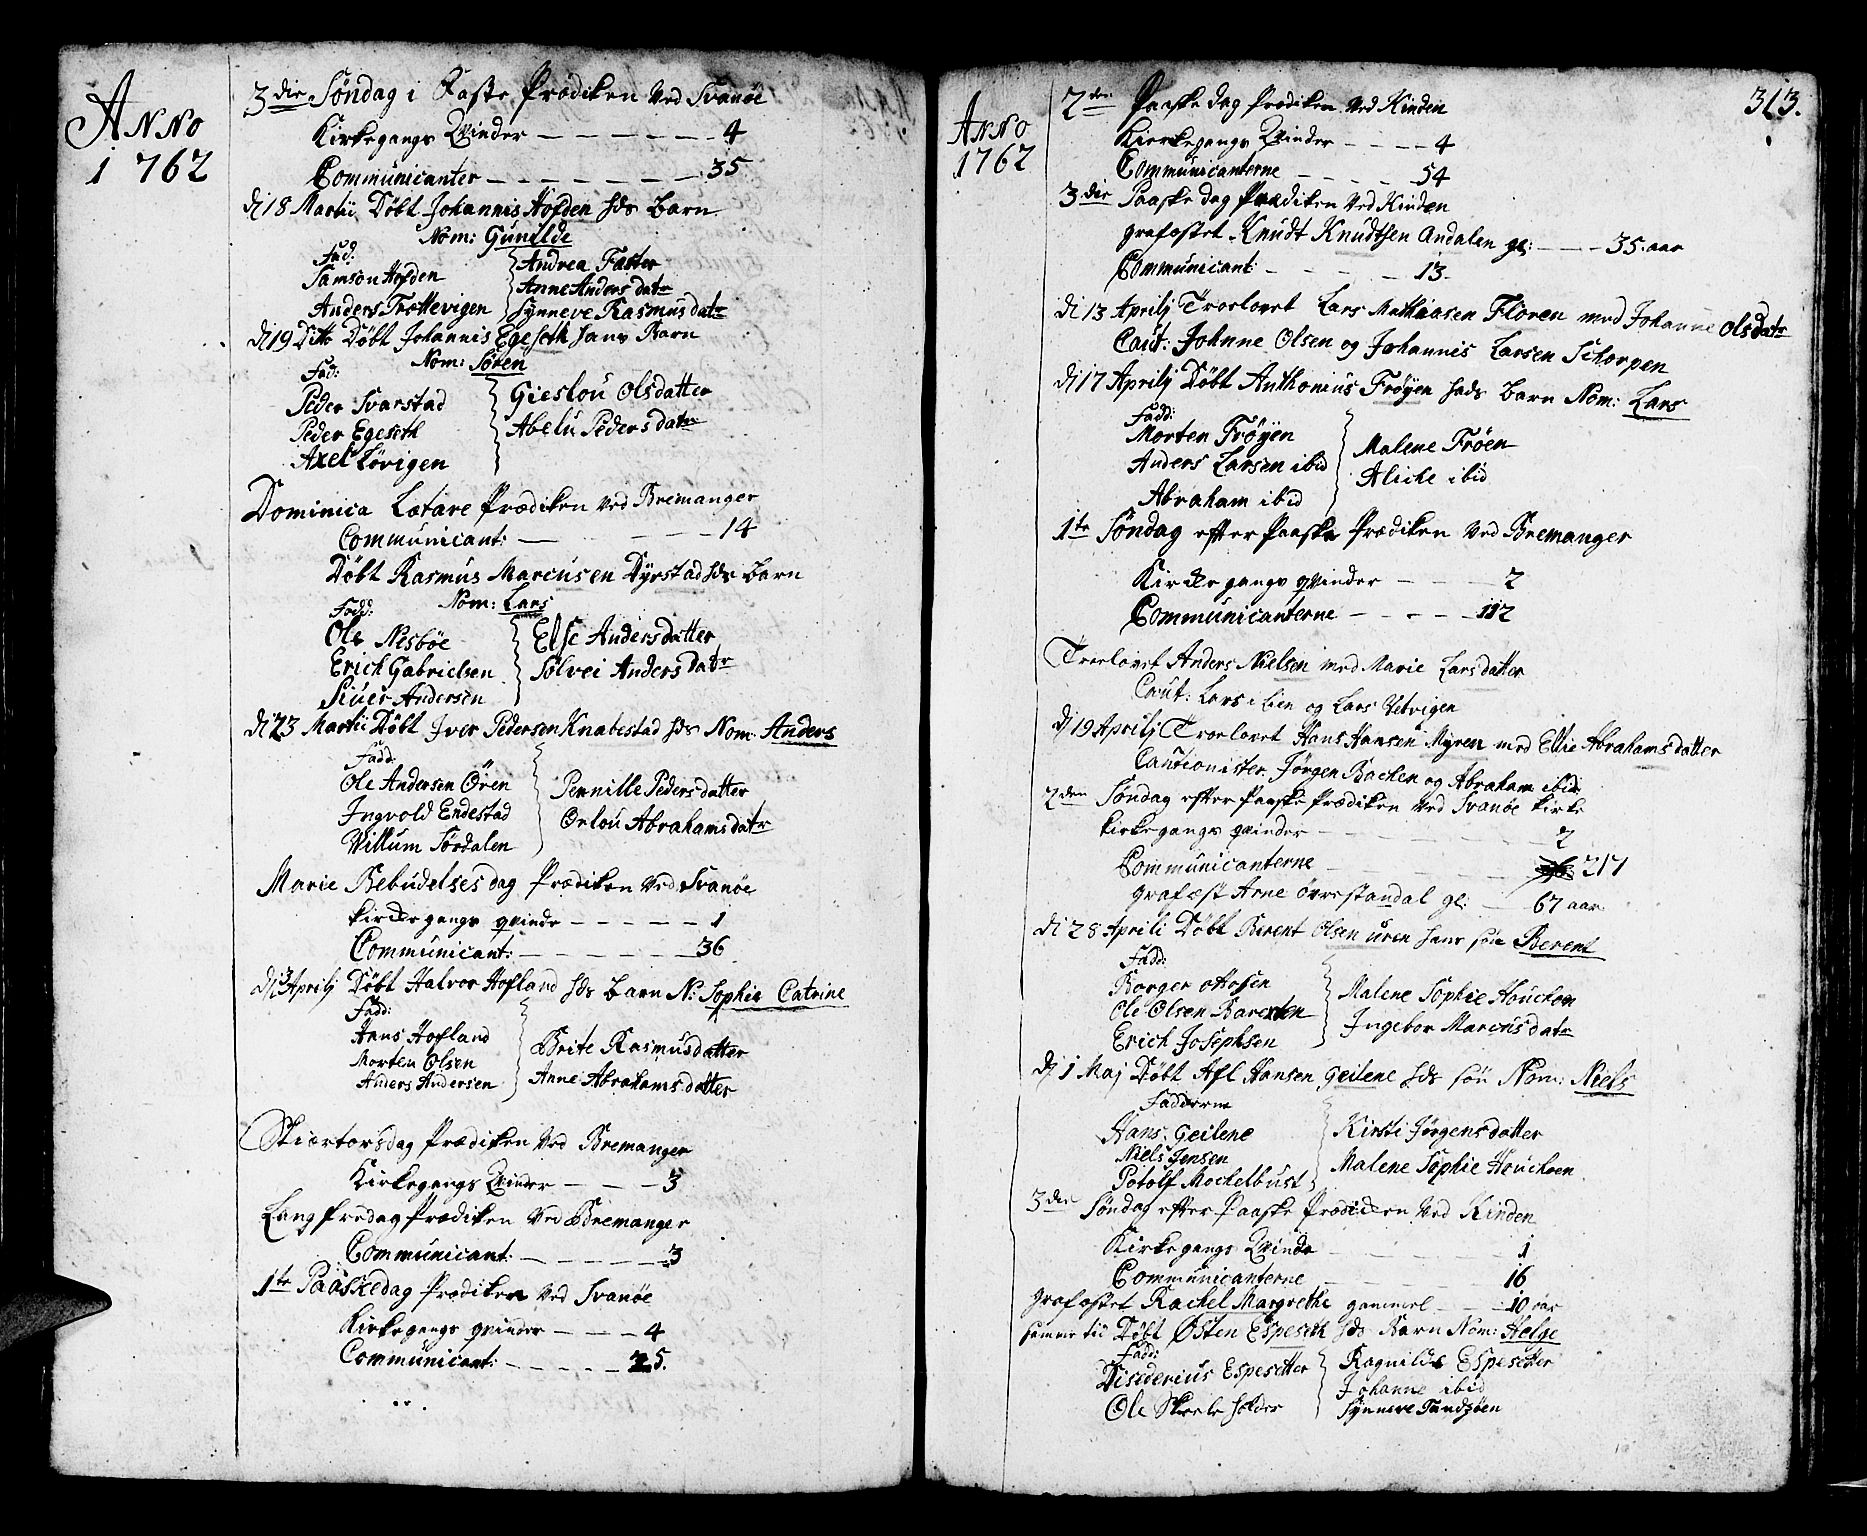 Anno
1762
3die Søndag i Faste Prædiken ved Svanöe
Kirkegangs Qvinder — — — — 4
Communicanter — — — — 35
di 18 Martii Döbt Johannis Hofden hds Barn
Nom: Gunilde
Fad:
Samson Hofden
Anders Trættevigen
Andrea Faster
Anne Andersdatr
Synneve Rasmusdatr
di 19 Dito Döbt Johannis Egeseth hans Barn
Nom: Sören
Fad:
Peder Svarstad
Peder Egeseth
Axel Lövigen
Gieslou Olsdatter
Abelu Pedersdatr
Dominica Lætare Prædiken ved Bremanger
Communicant: — — — — 14
Döbt Rasmus Marcusen Dyrstad hds Barn
Nom: Lars
Fadd:
Ole Nesböe
Erich Gabrielsen
Siuer Andersen
Else Andersdatter
Sølvei Andersdatr
di 23 Martii Döbt Iver Pedersen Knabestad hds Nom Anders
Fadd:
Ole Andersen Ören
Ingvold Endestad
Villum Sördalen
Pernille Pedersdatter
Orlou Abrahamsdatr
Marie Bebudelses dag Prædiken ved Svanöe
kirckegangs qvinde — — — — 1
Communicant: — — — — 36
di 3 Aprilj Döbt Halvor Hofland hds Barn N: Sophie Catrine
Fadd:
Hans Hofland
Morten Olsen
Anders Andersen
Brite Rasmusdatter
Anne Abrahamsdatter
Skiertorsdag Prædiken ved Bremanger
Kirkegangs Qvinder — — — 3
Langfredag Prædiken ved Bremanger
Communicant: — — — — 3
1te Paaskedag Prædiken ved Svanöe
Kirkegangs qvinder — — — 4
Communicant: — — — — 25.
313.
Anno
1762
2den Paaske dag Prædiken ved Kinden
Kirkegangs Qvinder — — — 4
Communicanterne — — — 54
3die Paaske dag Prædiken ved Kinden
græfæstet Knudt Knudtsen Andalen gl: — — 35 aar
Communicant: — — — — 13.
di 13 Aprilj Troelovet Lars Mathiasen Floren med Johanne Olsdatr
Caut: Johnne Olsen og Johannis Larsen Schorpen
di 17 Aprilj Döbt Anthonius Fröyen hads barn Nom: Lars
Fadd:
Morten Fröyen
Anders Larsen ibid
Abraham ibid
Malene Fröen
Aliche ibid
1te Söndag efter Paaske Prædiken ved Bremanger
Kirckegangs qvinder — — — 2
Communicanterne — — — — 112
Troelovet Anders Nielsen med Marie Larsdatter
Caut: Lars i Lien og Lars Vetvigen
di 19 Aprilj Troelovet Hans Hansen Myren med Ellie Abrahamsdatter
Cautionister Jörgen Backen og Abraham ibid
2den Söndag efter Paaske Prædiken ved Svanöe kirke
kirkegangs qvinder — — — — 2
Communicanterne — — — — 217
grafæst Arne övrestandal gl: — 67 aar
di 28 Aprili Döbt Berent Olsen uren hans sön Berent
Fadd:
Borger Ottosen
Ole Olsen Barexten
Erich Josephsen
Malene Sophie Houchen
Ingebor Marcusdatr
dj 1 Maj Döbt Afl Hansen Geilene hds sön Nom: Niels
Fadderne
Hans Geilene
Niels Jensen
Potolf Mochelbust
Kirsti Jörgensdatter
Malene Sophie Houchen
3die Söndag efter Paaske Prædicken ved Kinden
Kirkegangs Qvinde — — — — 1
Communicanterne — — — — 16
grafæstet Rachel Margrethe gammel — — 10 aar
samme tid Döbt Østen Espeseth hds Barn Nom: Helge
Fadd:
Disiderius Espesetter
Ole
Ragnilde Espesetter
Johanne ibid
Synneve Sandzöen